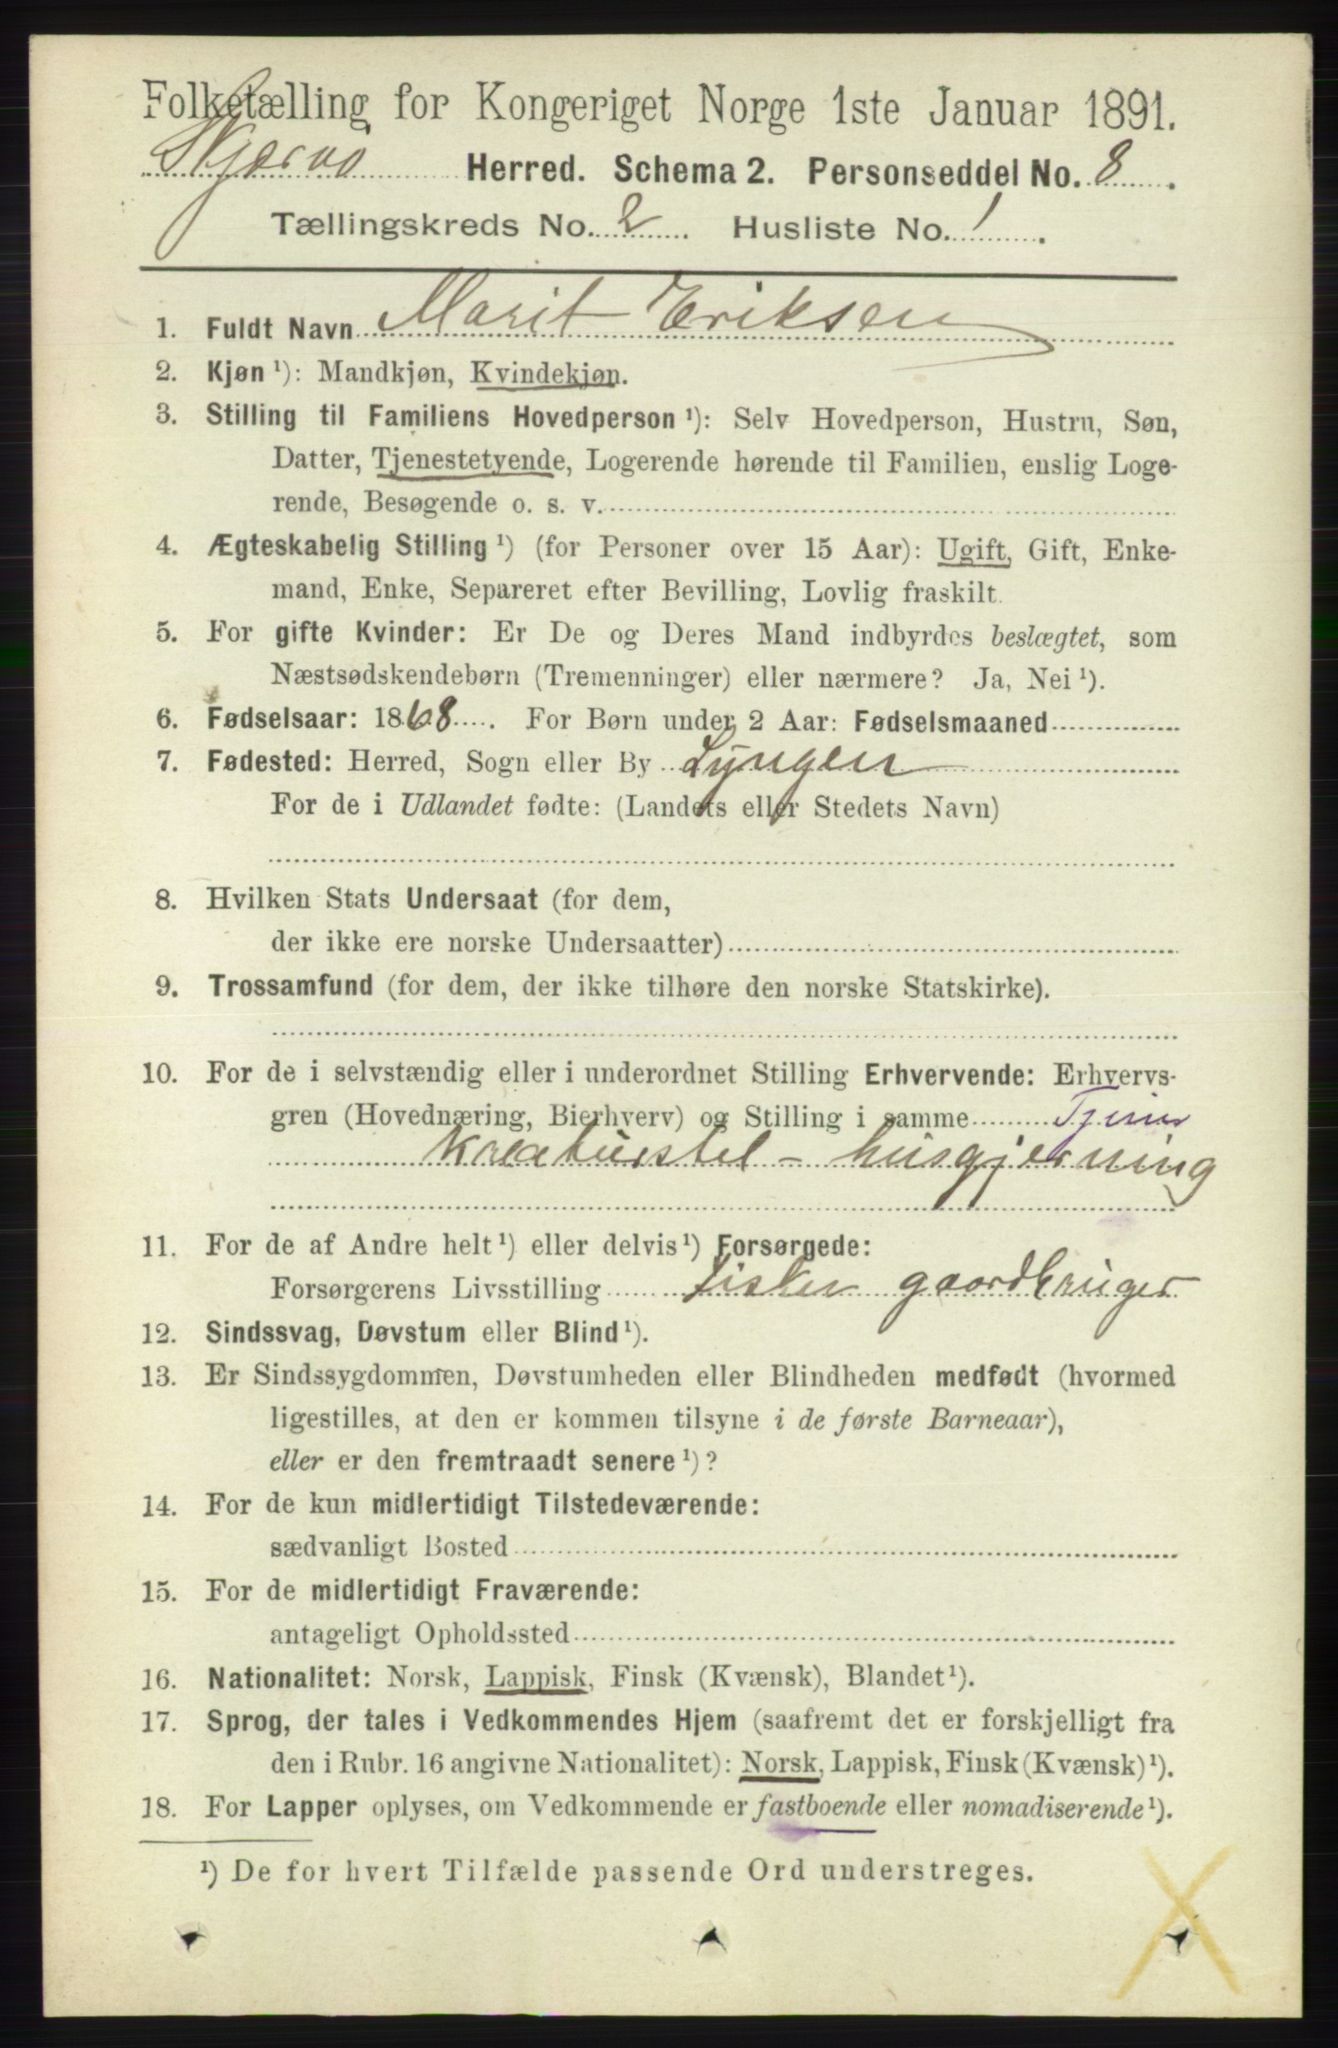 Folketælling for Kongeriget Norge 1ste Januar 1891.
Skjervø Herred. Schema 2. Personseddel No. 8.
Tællingskreds No. 2. Husliste No. 1.
1. Fuldt Navn Marit Eriksen
2. Kjøn ¹): Mandkjøn, Kvindekjøn.
3. Stilling til Familiens Hovedperson ¹): Selv Hovedperson, Hustru, Søn,
Datter, Tjenestetyende, Logerende hørende til Familien, enslig Loge-
rende, Besøgende o. s. v.
4. Ægteskabelig Stilling ¹) (for Personer over 15 Aar): Ugift, Gift, Enke-
mand, Enke, Separeret efter Bevilling, Lovlig fraskilt.
5. For gifte Kvinder: Er De og Deres Mand indbyrdes beslægtet, som
Næstsødskendebørn (Tremenninger) eller nærmere? Ja, Nei ¹).
6. Fødselsaar: 1868. For Børn under 2 Aar: Fødselsmaaned
7. Fødested: Herred, Sogn eller By Lyngen
For de i Udlandet fødte: (Landets eller Stedets Navn)
8. Hvilken Stats Undersaat (for dem,
der ikke ere norske Undersaatter)
9. Trossamfund (for dem, der ikke tilhøre den norske Statskirke).
10. For de i selvstændig eller i underordnet Stilling Erhvervende: Erhvervs-
gren (Hovednæring, Bierhverv) og Stilling i samme
kreaturstel - husgjerning
11. For de af Andre helt ¹) eller delvis ¹) Forsørgede:
Forsørgerens Livsstilling Fisker gaardbruger
12. Sindssvag, Døvstum eller Blind ¹).
13. Er Sindssygdommen, Døvstumheden eller Blindheden medfødt (hvormed
ligestilles, at den er kommen tilsyne i de første Barneaar),
eller er den fremtraadt senere ¹)?
14. For de kun midlertidigt Tilstedeværende:
sædvanligt Bosted
15. For de midlertidigt Fraværende:
antageligt Opholdssted
16. Nationalitet: Norsk, Lappisk, Finsk (Kvænsk), Blandet ¹).
17. Sprog, der tales i Vedkommendes Hjem (saafremt det er forskjelligt fra
den i Rubr. 16 angivne Nationalitet): Norsk, Lappisk, Finsk (Kvænsk) ¹).
18. For Lapper oplyses, om Vedkommende er fastboende eller nomadiserende ¹).
¹) De for hvert Tilfælde passende Ord understreges.